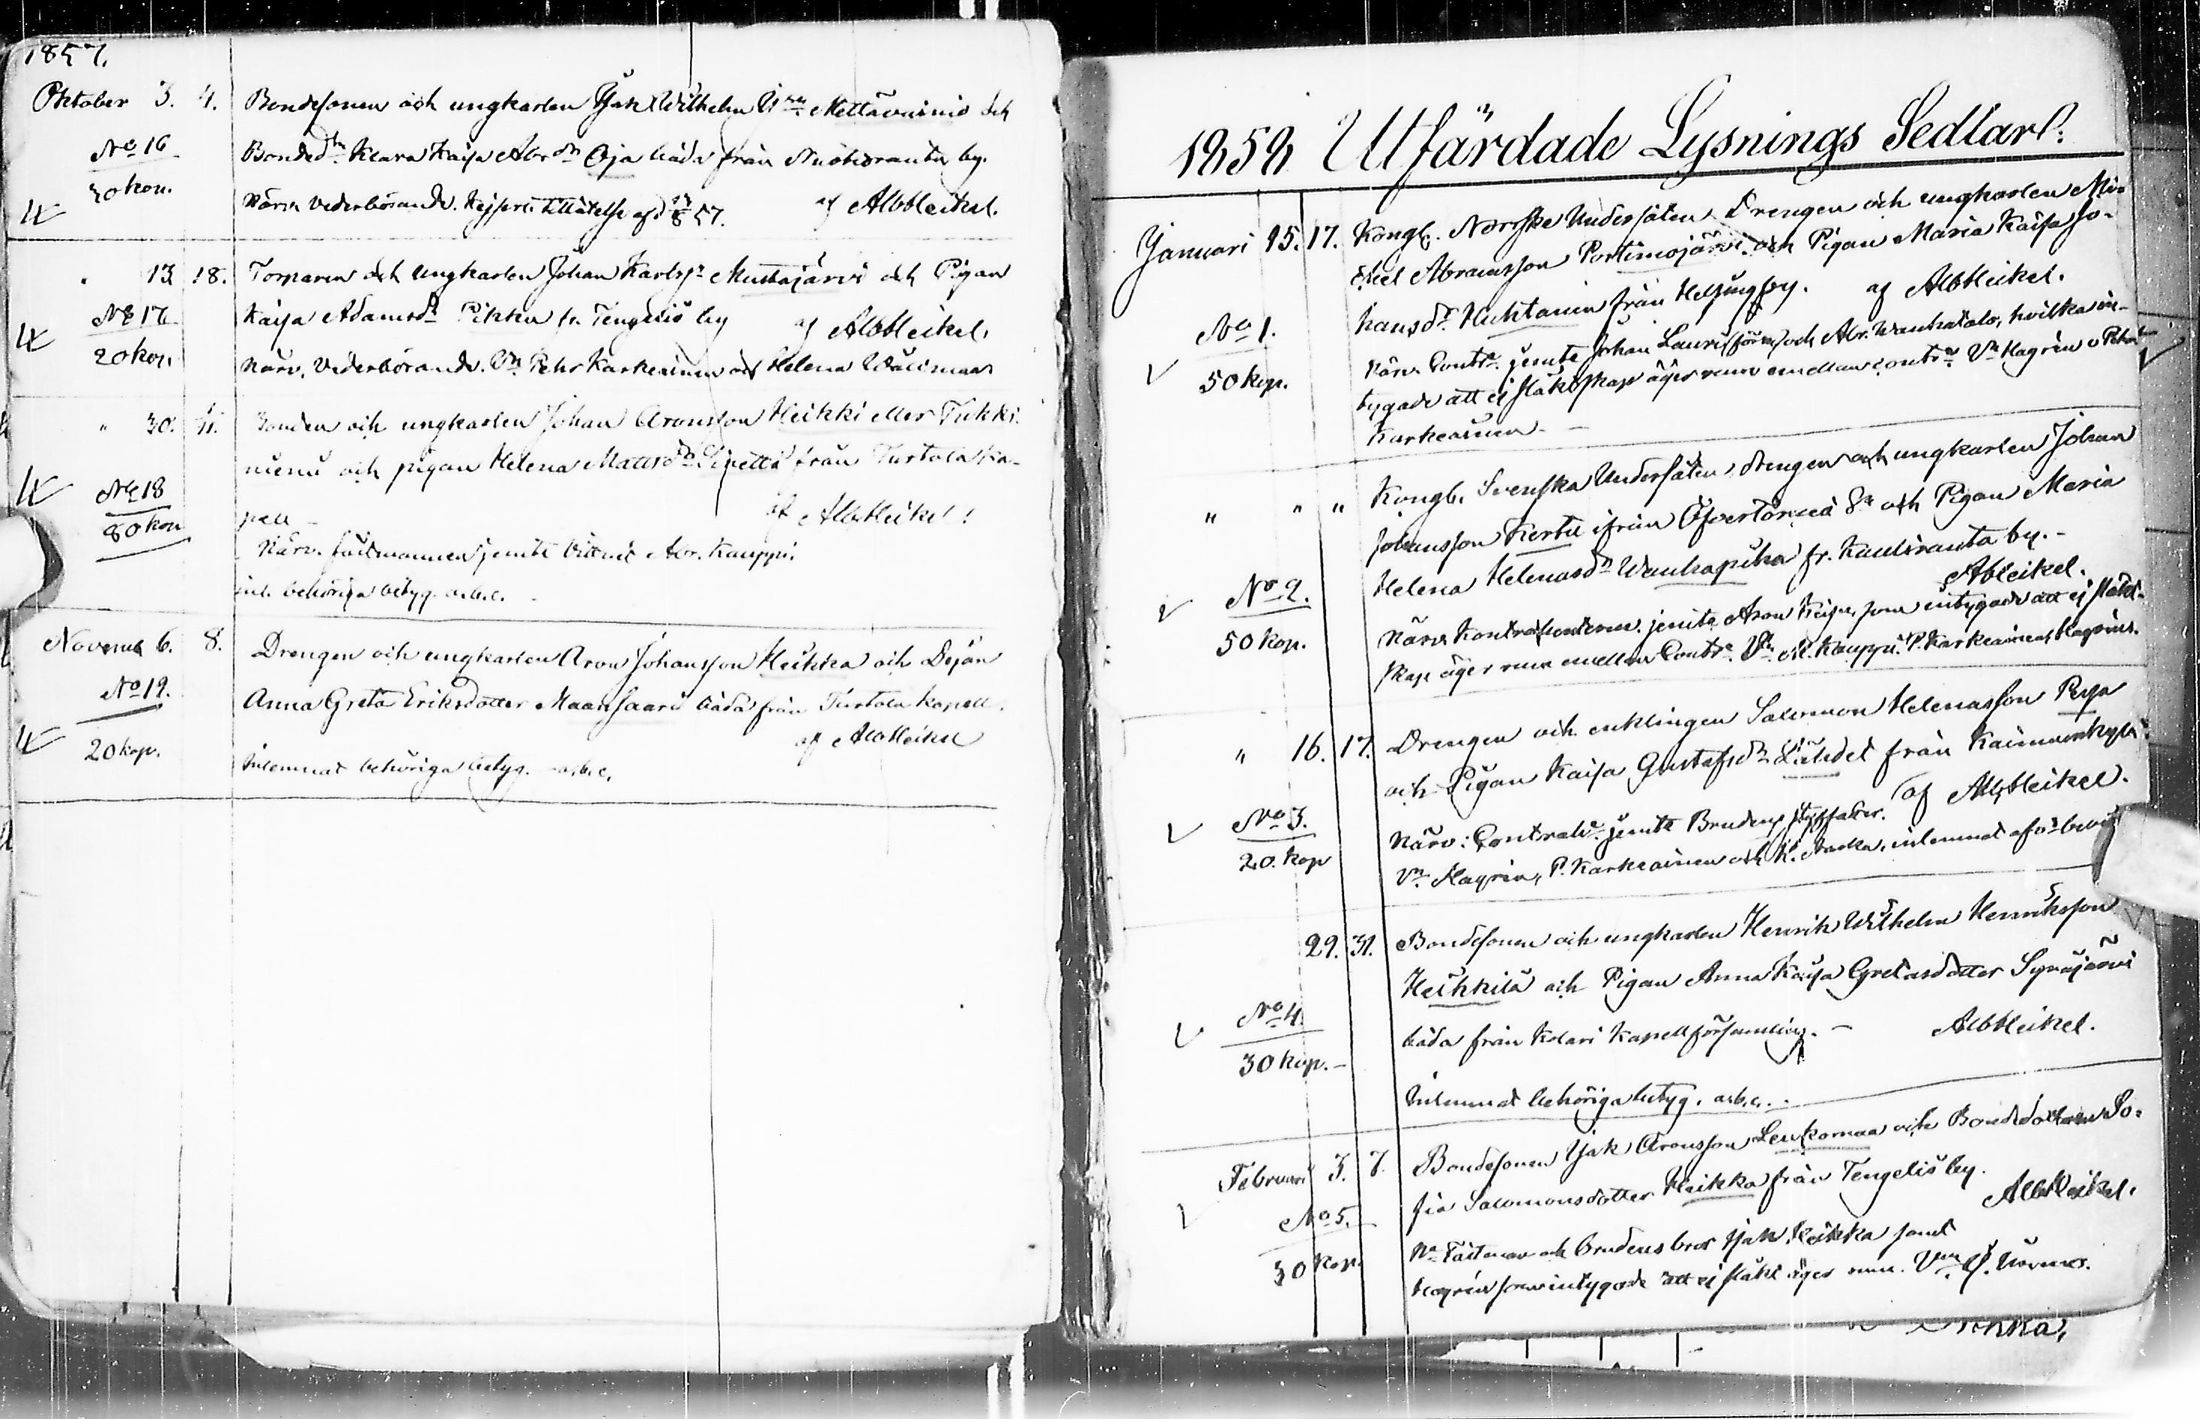 1857.
Oktober 3. 4. Bondesonen och ungkarlen Isak Wilhelm Mettävainio och
No 16 Bonded:r Klara Kajsa Abr.dr Oja båda från Nuotioranta by.
30 kop. Närv. vederbörande. Kejserl. tillåtelse af d. 57. af AlbHeikel.
" 13 18. Torparen och Ungkarlen Johan Karlss:n Mustajärvi och Pigan
No 17 Kajsa Adamsdr Pikka fr. Tengeliö by af AlbHeikel.
20 kop. Närv. Vederbörande. Vn Pehr Karkeainen och Helena
" 30. Bonden och ungkarlen Johan Aronsson Heikki eller Tikki-
niemi och pigan Helena Mattsdr Sipettä från Turtola ka-
No 18 pell af AlbHeikel.
80 kop. Närv. fästmannen jemte vittnet Abr. Kauppi.
inl. behöriga betyg. a.b.c.
Novemb 6. 8. Drengen och ungkarlen Aron Johansson Heikka och Dejan
No 19. Anna Greta Eriksdotter Maansaari båda från Turtola Kapell.
20 kop. af AlbHeikel
Inlemnat behöriga betyg. a.b.c.
1858 Utfärdade Lysnings Sedlar:
Januari 15. 17. Kongl. Norrske Undersåten, Drengen och ungkarlen Mi-
chel Abramsson Portimojärvi och Pigan Maria Kajsa Jo-
No 1. hansdr Huhtanen från Helsingby. af AlbHeikel.
50 kop. Närv. Contr. jemte Johan Lauri och Abr. Wanhatalo, hvilka in-
tygade att ej släktskap äger rum emellan contr. Vn Hagrén o Petr
Karkeainen.
" " " Kongl. Svenska Undersåten drengen och ungkarlen Johan
Johansson Kerttu ifrån Öfvertorneå Sn och Pigan Maria
No 2. Helena Helenasdr Wanhapiha fr. Kauliranta by.
50 kop. AbHeikel.
Närv. Kontrahenterne jemte Aron Keisu, som intygade att ej släkt-
skap äger rum emellan Contr. Vn M. Kauppi. P. Karkeainen, Hagréns.
" 16. 17. Drengen och enklingen Salomon Helenasson Peya
och Pigan Kajsa Gustafsdr Lähdet från Kainuunkylä.
No 3. af AlbHeikel.
20. kop Närv: Contrah. jemte Brudens styffader.
Vn Hagrén, P. Karkeainen och inlemnat
29. 31. Bondesonen och ungkarlen Henrik Wilhelm Henriksson
Heikkilä och Pigan Anna Kajsa Gretasdotter Syväjärvi
No 4. båda från Kolari Kapellförsamling. AlbHeikel.
30 kop.
Inlemnat behöriga betyg. a.b.c.
Februari 3. 7. Bondesonen Isak Aronsson Lenkomaa och Bondedottren So-
fia Salomonsdotter Heikka från Tengeliö by.
No 5. AlbHeikel.
30 kop. Nv Fästman och brudens bror Isak Heikka samt
Hagrén som intygade att ej släkt äger rum.